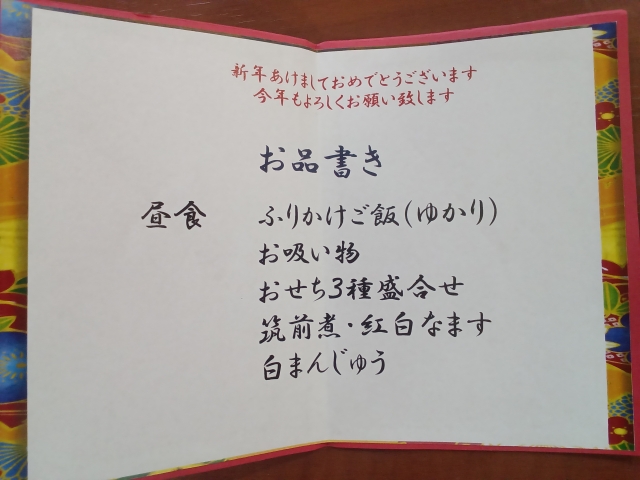 新年あけましておめでとうございます
今年もよろしくお願い致します
お品書き
昼食 ふりかけご飯(ゆかり)
お吸い物
おせち3種盛合せ
筑前煮・紅白なます
白まんじゅう